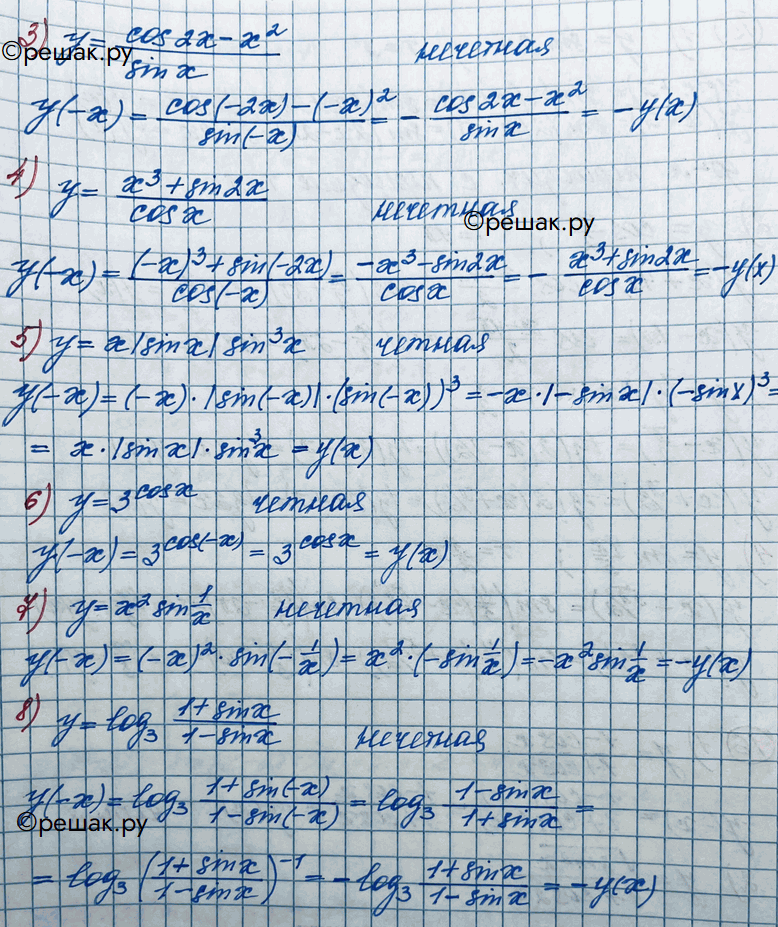 3) y = (cos 2x − x²)/(sin x) нечетная
©решак.ру
y(−x) = (cos(−2x) − (−x)²)/(sin(−x)) = − (cos 2x − x²)/(sin x) = −y(x)
4) y = (x³ + sin 2x)/(cos x) нечетная
©решак.ру
y(−x) = ((−x)³ + sin(−2x))/(cos(−x)) = (−x³ − sin 2x)/(cos x) = − (x³ + sin 2x)/(cos x) = −y(x)
5) y = x|sin x| sin³x четная
y(−x) = (−x) · |sin(−x)| · (sin(−x))³ = −x · |− sin x| · (−sin x)³ =
= x · |sin x| · sin³x = y(x)
6) y = 3^(cos x) четная
y(−x) = 3^(cos(−x)) = 3^(cos x) = y(x)
7) y = x² sin 1/x нечетная
y(−x) = (−x)² · sin(− 1/x) = x² · (−sin 1/x) = −x² sin 1/x = −y(x)
8) y = log₃ (1 + sin x)/(1 − sin x) нечетная
y(−x) = log₃ (1 + sin(−x))/(1 − sin(−x)) = log₃ (1 − sin x)/(1 + sin x) =
©решак.ру
= log₃ ((1 + sin x)/(1 − sin x))⁻¹ = − log₃ (1 + sin x)/(1 − sin x) = −y(x)